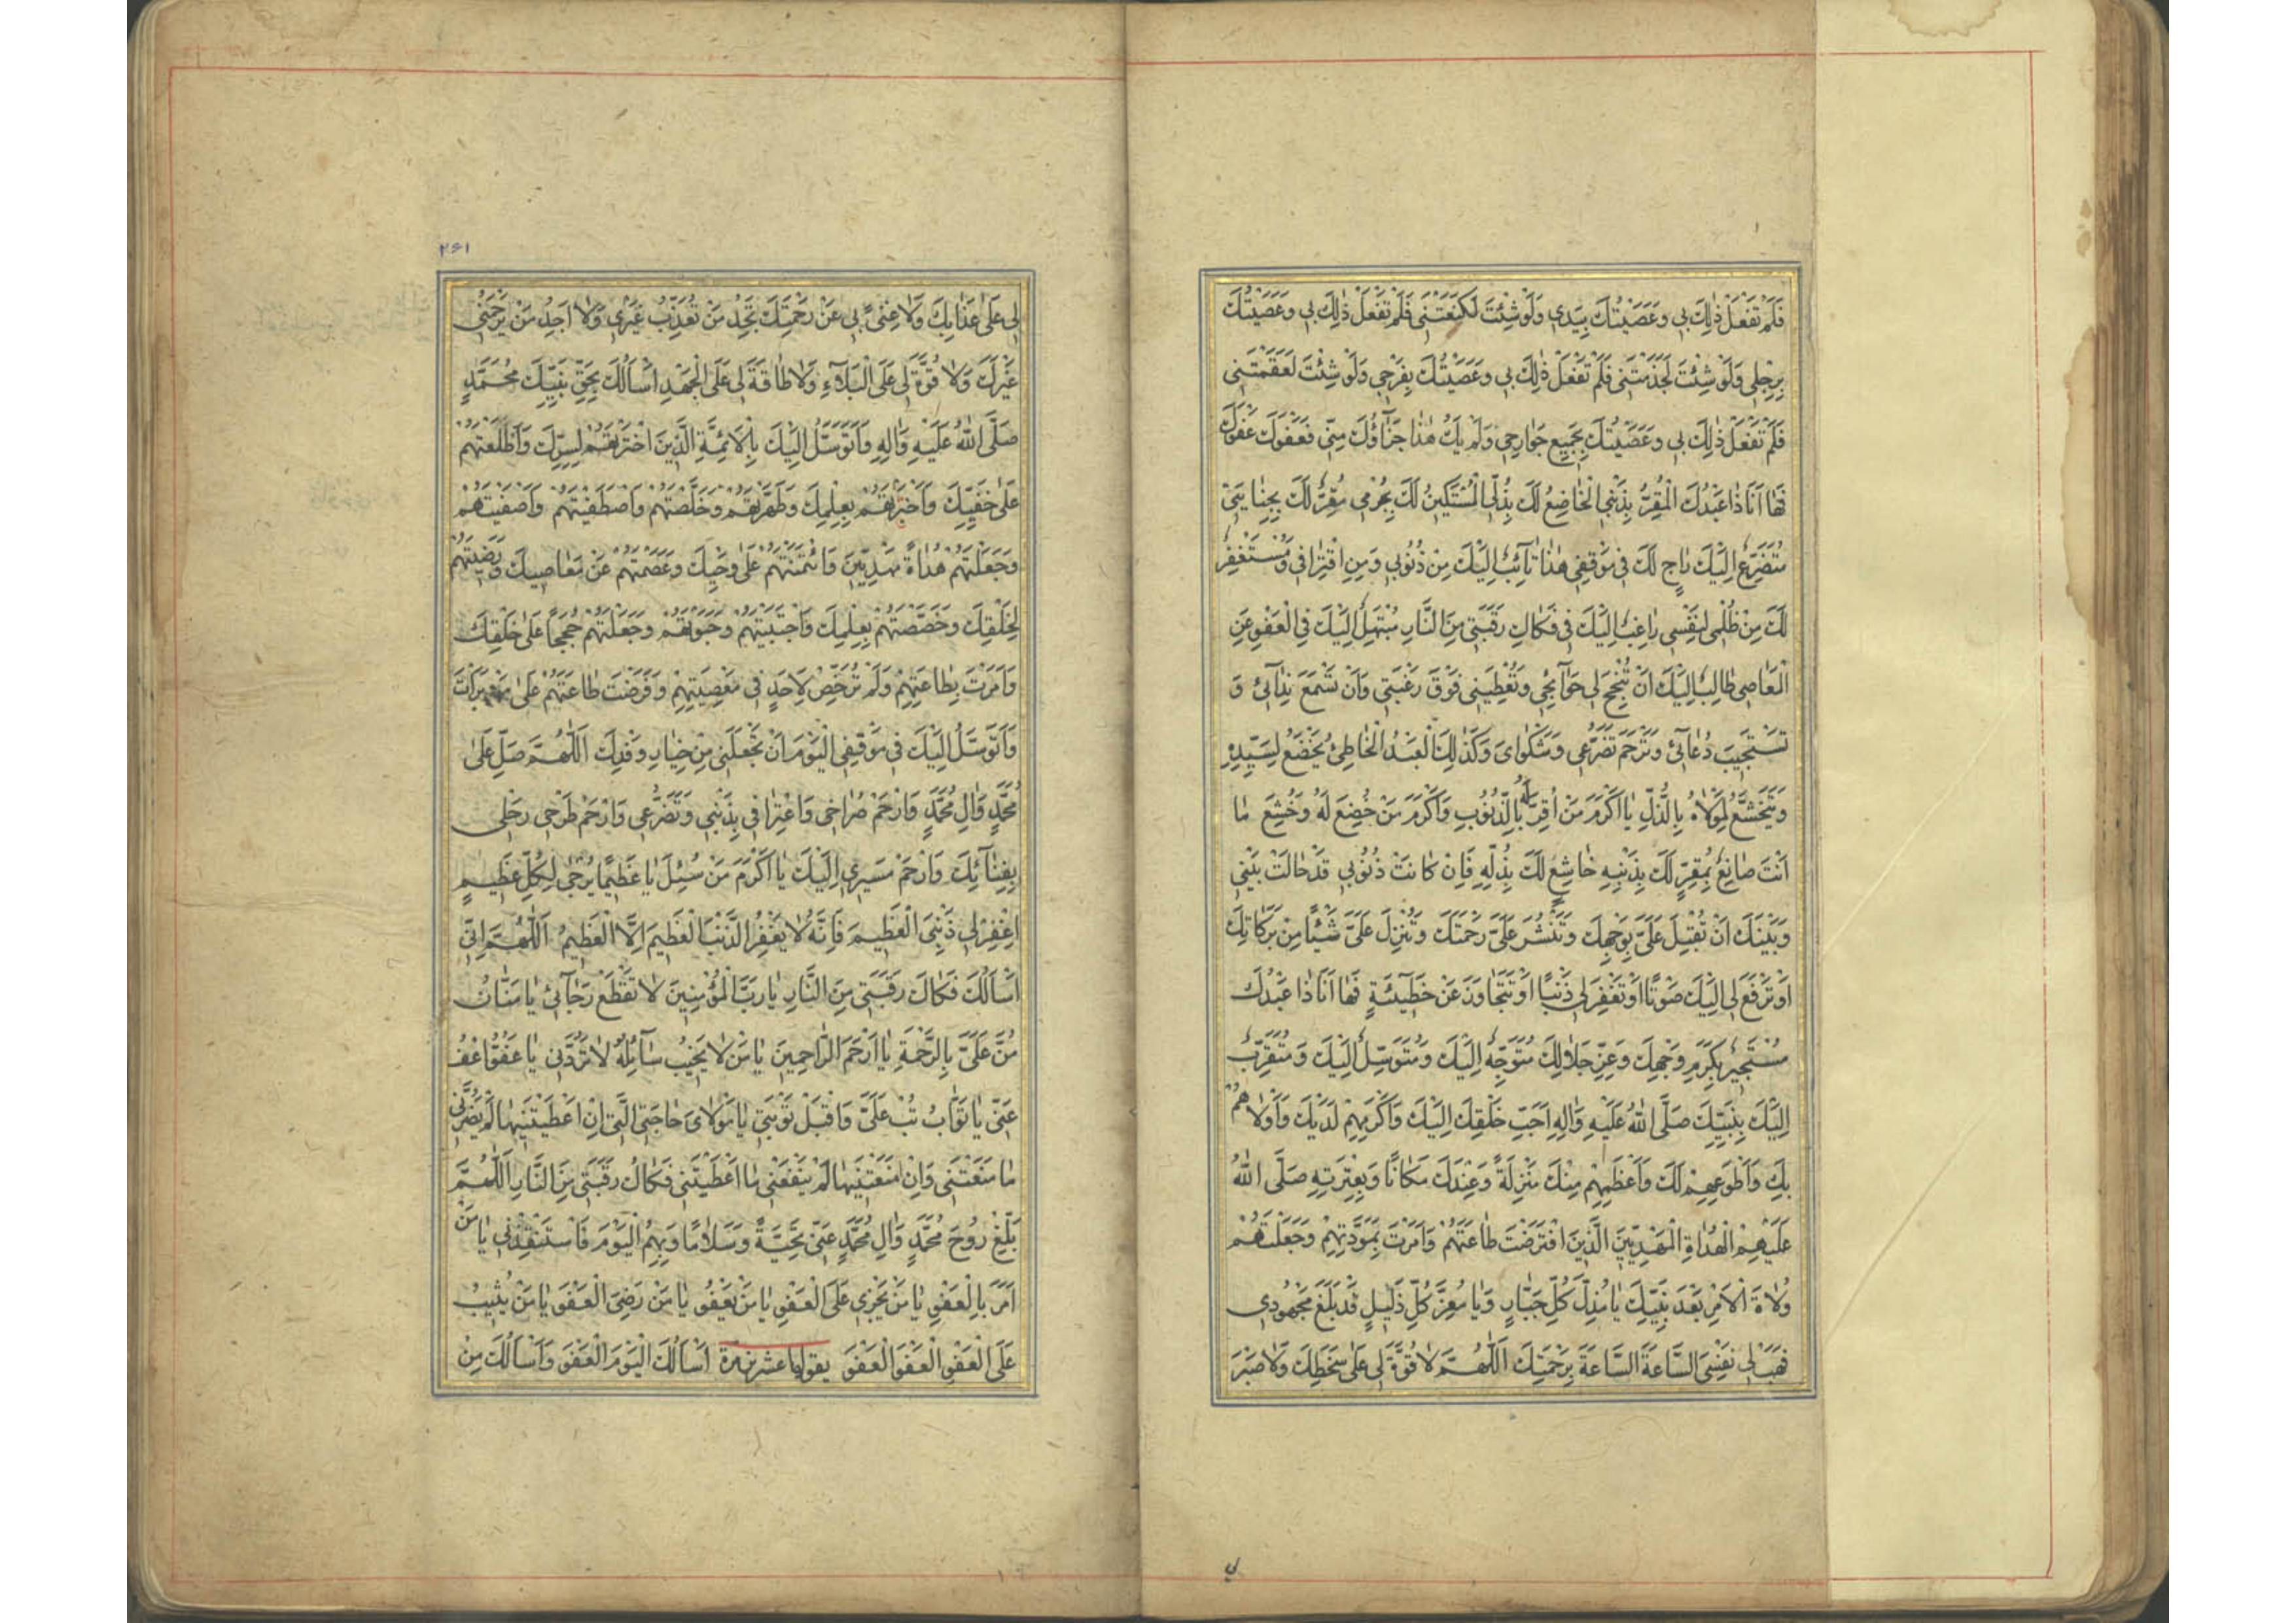 فَلَمْ تَفْعَلْ ذٰلِكَ بِي وَعَصَيْتُكَ بِيَدِي وَلَوْ شِئْتَ لَكَنَّعْتَنِي فَلَمْ تَفْعَلْ ذٰلِكَ بِي وَعَصَيْتُكَ
بِرِجْلِي وَلَوْ شِئْتَ لَجَذَمْتَنِي فَلَمْ تَفْعَلْ ذٰلِكَ بِي وَعَصَيْتُكَ بِفَرْجِي وَلَوْ شِئْتَ لَعَقَمْتَنِي
فَلَمْ تَفْعَلْ ذٰلِكَ بِي وَعَصَيْتُكَ بِجَمِيعِ جَوَارِحِي وَلَمْ يَكُ هٰذَا جَزَآؤُكَ مِنِّي فَعَفْوَكَ عَفْوَكَ
فَهَا اَنَا ذَا عَبْدُكَ الْمُقِرُّ بِذَنْبِي الْخَاضِعُ لَكَ بِذُلِّي الْمُسْتَكِينُ لَكَ بِجُرْمِي مُقِرٌّ لَكَ بِجِنَايَتِي
مُتَضَرِّعٌ اِلَيْكَ رَاجٍ لَكَ فِي مَوْقِفِي هٰذَا تَآئِبٌ اِلَيْكَ مِنْ ذُنُوبِي وَمِنِ اقْتِرَافِي وَمُسْتَغْفِرٌ
لَكَ مِنْ ظُلْمِي لِنَفْسِي رَاغِبٌ اِلَيْكَ فِي فَكَاكِ رَقَبَتِي مِنَ النَّارِ مُبْتَهِلٌ اِلَيْكَ فِي الْعَفْوِ عَنِ
الْمَعَاصِي طَالِبٌ اِلَيْكَ اَنْ تُنْجِحَ لِي حَوَآئِجِي وَتُعْطِيَنِي فَوْقَ رَغْبَتِي وَاَنْ تَسْمَعَ نِدَآئِي وَ
تَسْتَجِيبَ دُعَآئِي وَتَرْحَمَ تَضَرُّعِي وَشَكْوَايَ وَكَذٰلِكَ الْعَبْدُ الْخَاطِئُ يَخْضَعُ لِسَيِّدِهِ
وَيَتَخَشَّعُ لِمَوْلَاهُ بِالذُّلِّ يَا اَكْرَمَ مَنْ اُقِرَّ لَهُ بِالذُّنُوبِ وَاَكْرَمَ مَنْ خُضِعَ لَهُ وَخُشِعَ مَا
اَنْتَ صَانِعٌ بِمُقِرٍّ لَكَ بِذَنْبِهِ خَاشِعٍ لَكَ بِذُلِّهِ فَاِنْ كَانَتْ ذُنُوبِي قَدْ حَالَتْ بَيْنِي
وَبَيْنَكَ اَنْ تُقْبِلَ عَلَيَّ بِوَجْهِكَ وَتَنْشُرَ عَلَيَّ رَحْمَتَكَ وَتُنْزِلَ عَلَيَّ شَيْئًا مِنْ بَرَكَاتِكَ
اَوْ تَرْفَعَ لِي اِلَيْكَ صَوْتًا اَوْ تَغْفِرَ لِي ذَنْبًا اَوْ تَتَجَاوَزَ عَنْ خَطِيئَةٍ فَهَا اَنَا ذَا عَبْدُكَ
مُسْتَجِيرٌ بِكَرَمِ وَجْهِكَ وَعِزِّ جَلَالِكَ مُتَوَجِّهٌ اِلَيْكَ وَمُتَوَسِّلٌ اِلَيْكَ وَمُتَقَرِّبٌ
اِلَيْكَ بِنَبِيِّكَ صَلَّى اللهُ عَلَيْهِ وَاٰلِهِ اَحَبِّ خَلْقِكَ اِلَيْكَ وَاَكْرَمِهِمْ لَدَيْكَ وَاَوْلَاهُمْ
بِكَ وَاَطْوَعِهِمْ لَكَ وَاَعْظَمِهِمْ مِنْكَ مَنْزِلَةً وَعِنْدَكَ مَكَانًا وَبِعِتْرَتِهِ صَلَّى اللهُ
عَلَيْهِمُ الْهُدَاةِ الْمَهْدِيِّينَ الَّذِينَ افْتَرَضْتَ طَاعَتَهُمْ وَاَمَرْتَ بِمَوَدَّتِهِمْ وَجَعَلْتَهُمْ
وُلَاةَ الْاَمْرِ بَعْدَ نَبِيِّكَ يَا مُذِلَّ كُلِّ جَبَّارٍ وَيَا مُعِزَّ كُلِّ ذَلِيلٍ قَدْ بَلَغَ مَجْهُودِي
فَهَبْ لِي نَفْسِيَ السَّاعَةَ السَّاعَةَ بِرَحْمَتِكَ اَللّٰهُمَّ لَا قُوَّةَ لِي عَلٰى سَخَطِكَ وَلَا صَبْرَ
لی
۲۶۱
لِي عَلٰى عَذَابِكَ وَلَا غِنًى بِي عَنْ رَحْمَتِكَ تَجِدُ مَنْ تُعَذِّبُ غَيْرِي وَلَا اَجِدُ مَنْ يَرْحَمُنِي
غَيْرَكَ وَلَا قُوَّةَ لِي عَلَى الْبَلَآءِ وَلَا طَاقَةَ لِي عَلَى الْجَهْدِ اَسْأَلُكَ بِحَقِّ نَبِيِّكَ مُحَمَّدٍ
صَلَّى اللهُ عَلَيْهِ وَاٰلِهِ وَاَتَوَسَّلُ اِلَيْكَ بِالْاَئِمَّةِ الَّذِينَ اخْتَرْتَهُمْ لِسِرِّكَ وَاَطْلَعْتَهُمْ
عَلٰى خَفِيِّكَ وَاخْتَرْتَهُمْ بِعِلْمِكَ وَطَهَّرْتَهُمْ وَخَلَّصْتَهُمْ وَاصْطَفَيْتَهُمْ وَاَصْفَيْتَهُمْ
وَجَعَلْتَهُمْ هُدَاةً مَهْدِيِّينَ وَائْتَمَنْتَهُمْ عَلٰى وَحْيِكَ وَعَصَمْتَهُمْ عَنْ مَعَاصِيكَ وَرَضِيتَهُمْ
لِخَلْقِكَ وَخَصَصْتَهُمْ بِعِلْمِكَ وَاجْتَبَيْتَهُمْ وَحَبَوْتَهُمْ وَجَعَلْتَهُمْ حُجَجًا عَلٰى خَلْقِكَ
وَاَمَرْتَ بِطَاعَتِهِمْ وَلَمْ تُرَخِّصْ لِاَحَدٍ فِي مَعْصِيَتِهِمْ وَفَرَضْتَ طَاعَتَهُمْ عَلٰى مَنْ بَرَأْتَ
وَاَتَوَسَّلُ اِلَيْكَ فِي مَوْقِفِي الْيَوْمَ اَنْ تَجْعَلَنِي مِنْ خِيَارِ وَفْدِكَ اَللّٰهُمَّ صَلِّ عَلٰى
مُحَمَّدٍ وَاٰلِ مُحَمَّدٍ وَارْحَمْ صُرَاخِي وَاعْتِرَافِي بِذَنْبِي وَتَضَرُّعِي وَارْحَمْ طَرْحِي رَحْلِي
بِفِنَآئِكَ وَارْحَمْ مَسِيرِي اِلَيْكَ يَا اَكْرَمَ مَنْ سُئِلَ يَا عَظِيمًا يُرْجٰى لِكُلِّ عَظِيمٍ
اِغْفِرْ لِي ذَنْبِيَ الْعَظِيمَ فَاِنَّهُ لَا يَغْفِرُ الذَّنْبَ الْعَظِيمَ اِلَّا الْعَظِيمُ اَللّٰهُمَّ اِنِّي
اَسْأَلُكَ فَكَاكَ رَقَبَتِي مِنَ النَّارِ يَا رَبَّ الْمُؤْمِنِينَ لَا تَقْطَعْ رَجَآئِي يَا مَنَّانُ
مُنَّ عَلَيَّ بِالرَّحْمَةِ يَا اَرْحَمَ الرَّاحِمِينَ يَا مَنْ لَا يَخِيبُ سَآئِلُهُ لَا تَرُدَّنِي يَا عَفُوُّ اعْفُ
عَنِّي يَا تَوَّابُ تُبْ عَلَيَّ وَاقْبَلْ تَوْبَتِي يَا مَوْلَايَ حَاجَتِي الَّتِي اِنْ اَعْطَيْتَنِيهَا لَمْ يَضُرَّنِي
مَا مَنَعْتَنِي وَاِنْ مَنَعْتَنِيهَا لَمْ يَنْفَعْنِي مَا اَعْطَيْتَنِي فَكَاكُ رَقَبَتِي مِنَ النَّارِ اَللّٰهُمَّ
بَلِّغْ رُوحَ مُحَمَّدٍ وَاٰلِ مُحَمَّدٍ عَنِّي تَحِيَّةً وَسَلَامًا وَبِهِمُ الْيَوْمَ فَاسْتَنْقِذْنِي يَا مَنْ
اَمَرَ بِالْعَفْوِ يَا مَنْ يَجْزِي عَلَى الْعَفْوِ يَا مَنْ يَعْفُو يَا مَنْ رَضِيَ الْعَفْوَ يَا مَنْ يُثِيبُ
عَلَى الْعَفْوِ الْعَفْوَ الْعَفْوَ يقولها عشرين مرة اَسْأَلُكَ الْيَوْمَ الْعَفْوَ وَاَسْأَلُكَ مِنْ